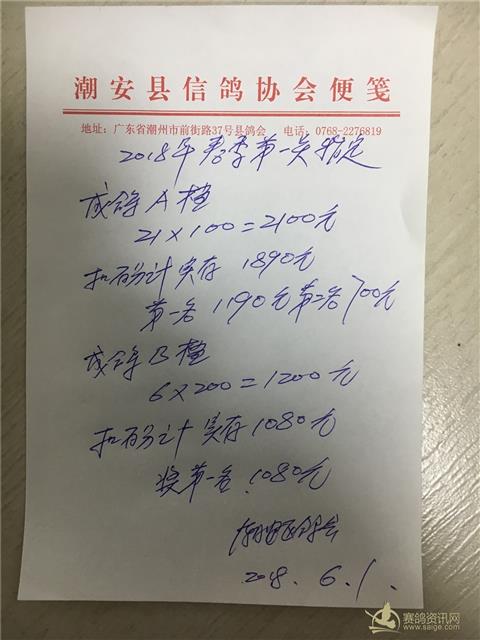 潮安县信鸽协会便笺
地址:广东省潮州市前街路37号县鸽会 电话:0768-2276819
2018年春季第一关指定
成鸽A档
21×100=2100元
扣 计实存 1890元
第一名1190元第二名700元
成鸽B档
6×200=1200元
扣 计实存1080元
奖第一名.1080元
2018.6.1.
赛鸽资讯网
www.saige.com